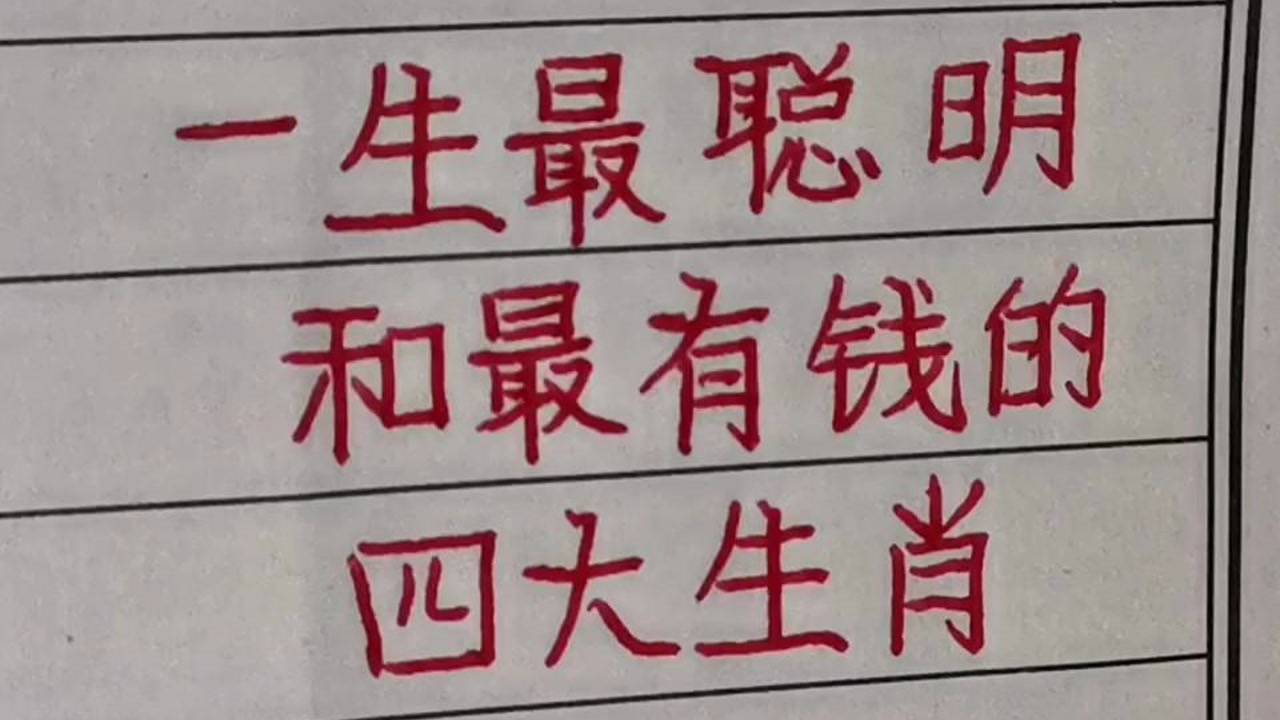 一生最聪明
和最有钱的
四大生肖